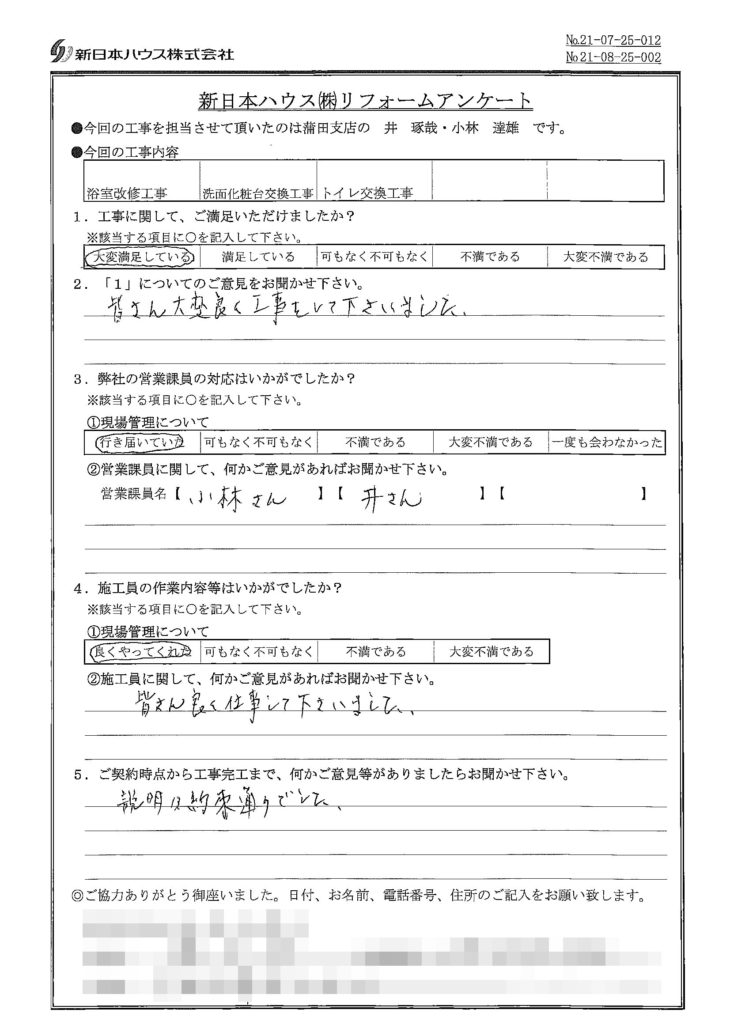 新日本ハウス株式会社
No.21-07-25-012
No.21-08-25-002
新日本ハウス㈱リフォームアンケート
●今回の工事を担当させて頂いたのは蒲田支店の 井 琢哉・小林 達雄 です。
●今回の工事内容
浴室改修工事 洗面化粧台交換工事 トイレ交換工事
1．工事に関して、ご満足いただけましたか？
※該当する項目に○を記入して下さい。
大変満足している 満足している 可もなく不可もなく 不満である 大変不満である
2．「1」についてのご意見をお聞かせ下さい。
皆さん大変良く工事をして下さいました、
3．弊社の営業課員の対応はいかがでしたか？
※該当する項目に○を記入して下さい。
①現場管理について
行き届いていた 可もなく不可もなく 不満である 大変不満である 一度も会わなかった
②営業課員に関して、何かご意見があればお聞かせ下さい。
営業課員名【 小林さん 】【 井さん 】【 】
4．施工員の作業内容等はいかがでしたか？
※該当する項目に○を記入して下さい。
①現場管理について
良くやってくれた 可もなく不可もなく 不満である 大変不満である
②施工員に関して、何かご意見があればお聞かせ下さい。
皆さん良く仕事して下さいました、
5．ご契約時点から工事完工まで、何かご意見等がありましたらお聞かせ下さい。
説明は約束通りでした、
◎ご協力ありがとう御座いました。日付、お名前、電話番号、住所のご記入をお願い致します。